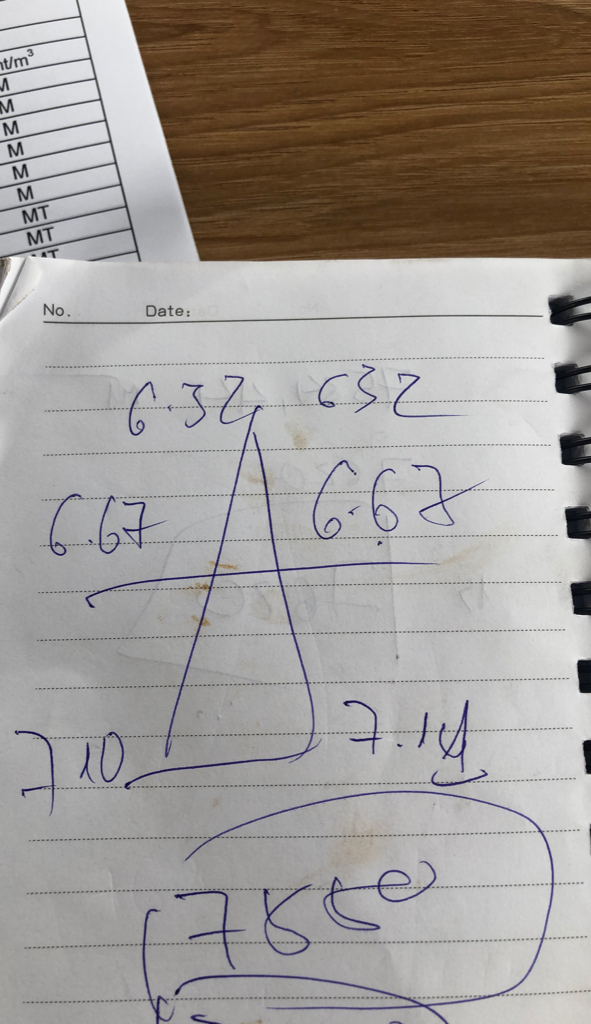 nt/m³
M
M
M
M
M
M
MT
MT
MT
No. Date:
6.32 632
6.67 6.67
710 7.14
7550